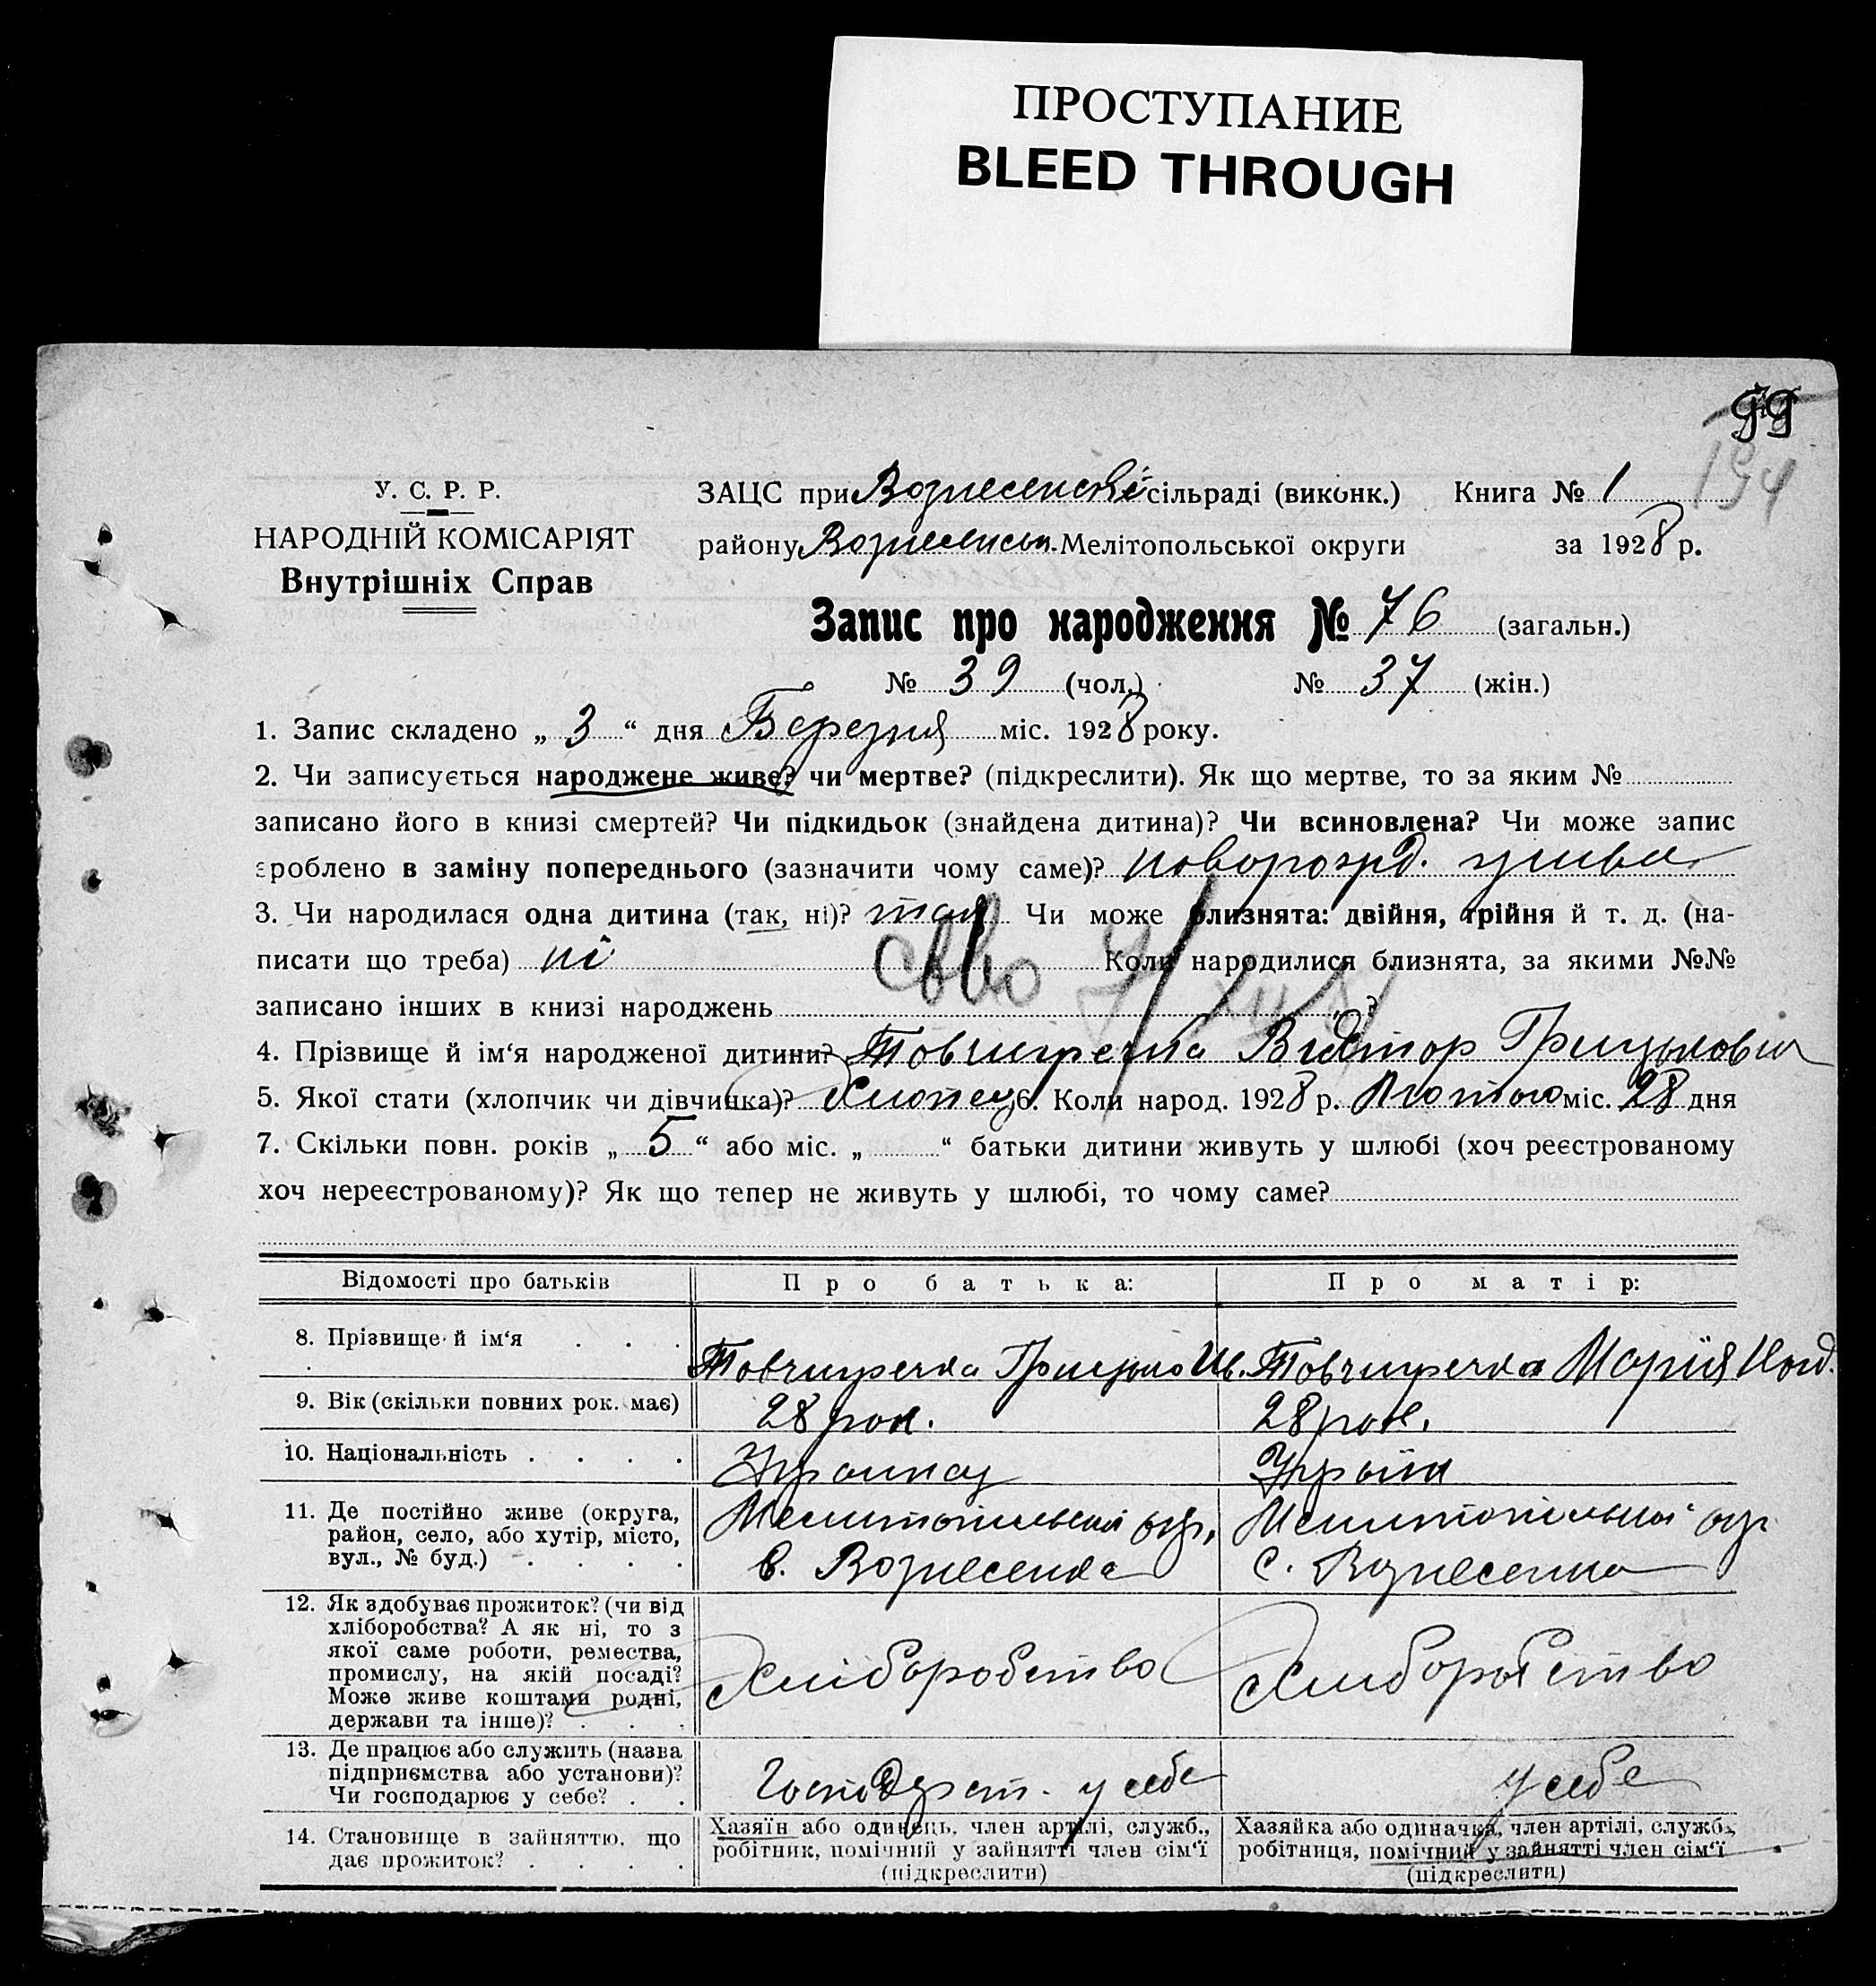 ПРОСТУПАНИЕ
BLEED THROUGH
99
194
У. С. Р. Р.
НАРОДНІЙ КОМІСАРІЯТ
Внутрішніх Справ
ЗАЦС при Вознесенскѣ сільраді (виконк.) Книга № 1
району Вознесенськ. Мелітопольської округи за 1928 р.
Запис про народження № 76 (загальн.)
№ 39 (чол.) № 37 (жін.)
1. Запис складено „ 3 “ дня Березня міс. 1928 року.
2. Чи записується народжене живе? чи мертве? (підкреслити). Як що мертве, то за яким №
записано його в книзі смертей? Чи підкидьок (знайдена дитина)? Чи всиновлена? Чи може запис
зроблено в заміну попереднього (зазначити чому саме)?
3. Чи народилася одна дитина (так, ні)? так Чи може близнята: двійня, трійня й т. д. (на-
писати що треба) ні Коли народилися близнята, за якими №№
записано інших в книзі народжень ?
4. Прізвище й ім‘я народженої дитини? Товчигречка Віктор Грицькович
5. Якої стати (хлопчик чи дівчинка)? Хлопец 6. Коли народ. 1928 р. Лютого міс. 28 дня
7. Скільки повн. років „ 5 “ або міс. „ “ батьки дитини живуть у шлюбі (хоч реєстрованому
хоч нереєстрованому)? Як що тепер не живуть у шлюбі, то чому саме?
Відомості про батьків Про батька: Про матір:
8. Прізвище й ім‘я . . . Товчигречка Грицько Ив. Товчигречка Марія
9. Вік (скільки повних рок. має) 28 рок. 28 рок.
10. Національність . . . . Украинец Україн
11. Де постійно живе (округа,
район, село, або хутір, місто,
вул., № буд.) . . . .
Мелитопільской окр, Мелитопільської окр
с. Вознесенка с. Вознесенка
12. Як здобуває прожиток? (чи від
хліборобства? А як ні, то з
якої саме роботи, ремества,
промислу, на якій посаді?
Може живе коштами родні,
держави та інше)? . . .
Хліборобство Хлиборобство
13. Де працює або служить (назва
підприємства або установи)?
Чи господарює у себе? . .
у себе у себе
14. Становище в зайняттю, що
дає прожиток? . . . .
Хазяїн або одинець, член артілі, служб.,
робітник, помічний у зайнятті член сім‘ї
(підкреслити)
Хазяйка або одиначка, член артілі, служб.,
робітниця, помічний у зайнятті член сім‘ї
(підкреслити)